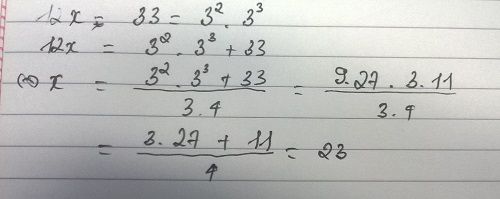 12x = 33 = 3². 3³
12x = 3². 3³ + 33
(=) x = (3². 3³ + 33) / (3. 4) = (9. 27. 3. 11) / (3. 4)
= (3. 27 + 11) / 4 = 23